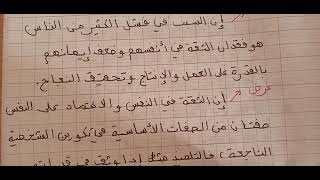 إن السبب في فشل الكثير من الناس
هو فقدان الثقة في أنفسهم وضعف إيمانهم
بالقدرة على العمل والإنتاج وتحقيق النجاح.
عرض
إن الثقة في النفس والاعتماد على النفس
صفتان من الصفات الأساسية في تكوين الشخصية
الناجحة، فالتلميذ مثلا إذا وثق في